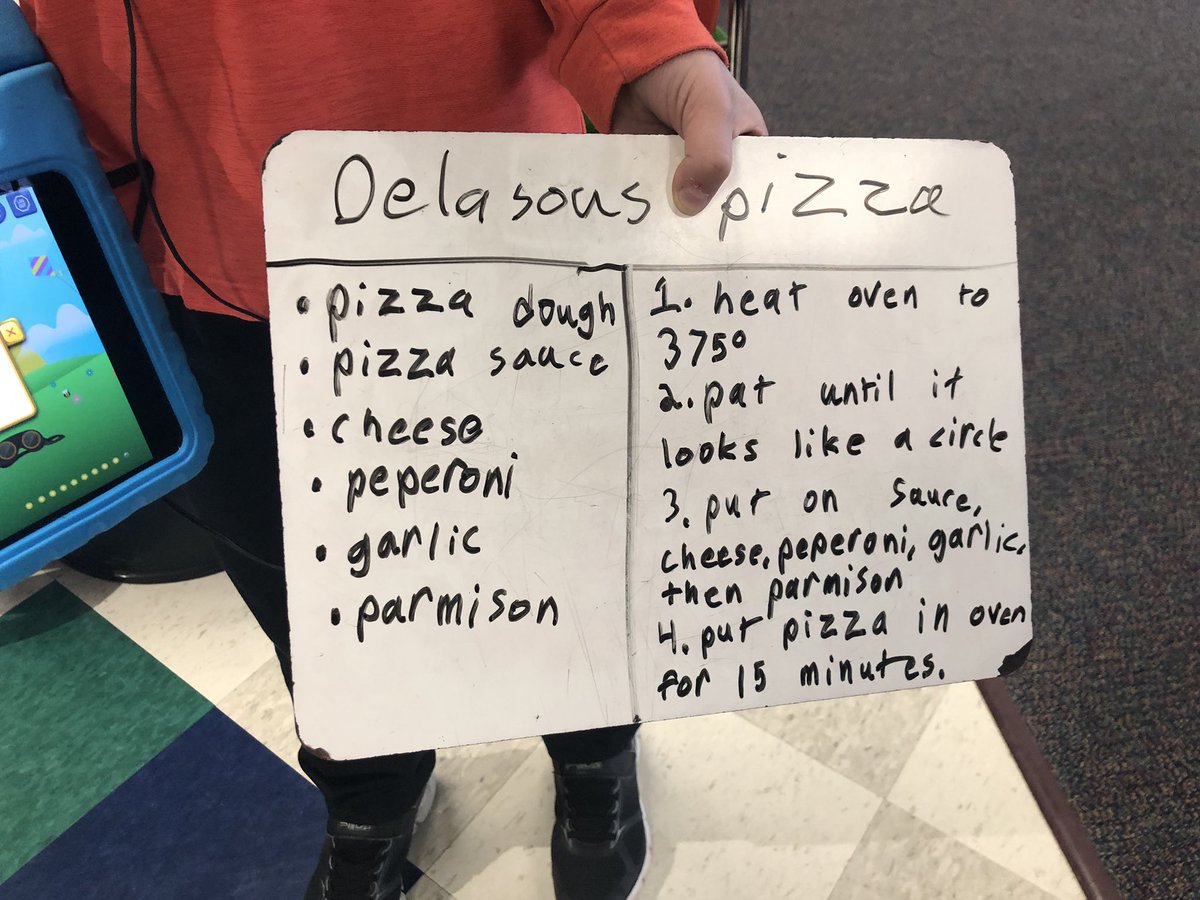 Delasous pizza
• pizza dough
• pizza sauce
• cheese
• peperoni
• garlic
• parmison
1. heat oven to
375°
2. pat until it
looks like a circle
3. put on saure,
cheese, peperoni, garlic,
then parmison
4. put pizza in oven
for 15 minutes.